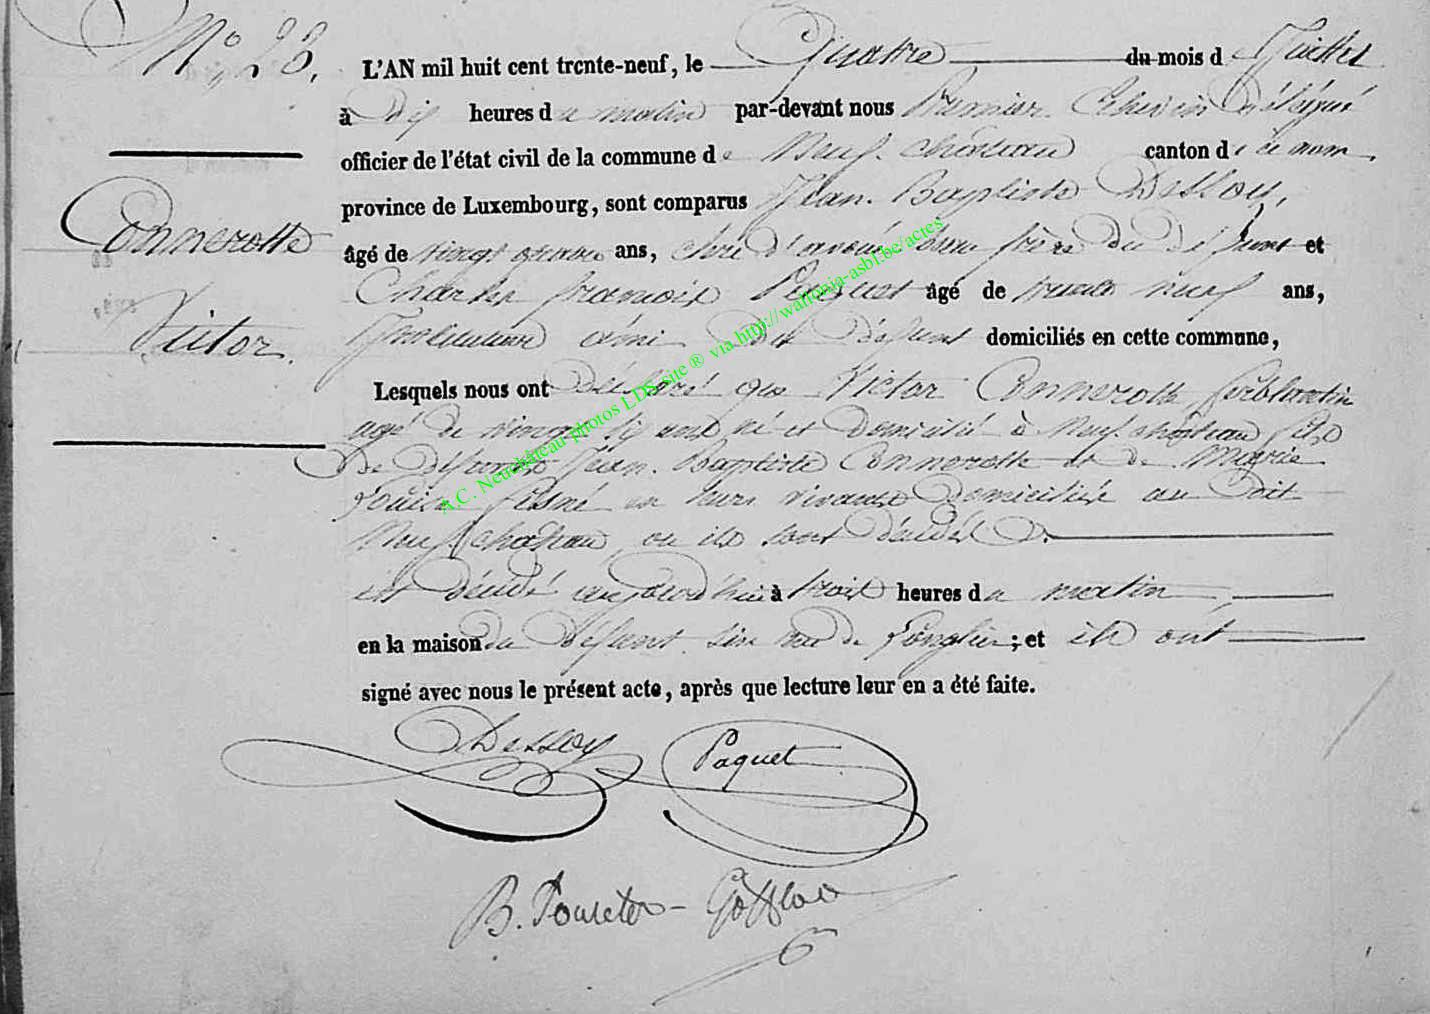 N° 23.
Connerotte
Victor.
L'AN mil huit cent trente-neuf, le Quatre du mois de Juillet
à dix heures du matin par-devant nous Premier Echevin délégué
officier de l'état civil de la commune de Neufchâteau canton de ce nom,
province de Luxembourg, sont comparus Jean Baptiste Dessoy,
âgé de vingt ans, clerc d'avoué beau frère du défunt et
Charles françois Paquet âgé de trente neuf ans,
ami du défunt domiciliés en cette commune,
Lesquels nous ont déclaré que Victor Connerotte
agé de vingt six ans né et domicilié à Neufchâteau, fils
de défunts Jean Baptiste Connerotte et de Marie
Louise en leurs vivants domiciliés au dit
Neufchâteau ou ils sont décédés
est décédé aujourd'hui à trois heures du matin
en la maison du défunt sise rue de Longlier ; et ils ont
signé avec nous le présent acte, après que lecture leur en a été faite.
Dessoy Paquet
B. Poncelet
A.C. Neufchâteau photos LDS site ® via http://wallonia-asbl.be/actes